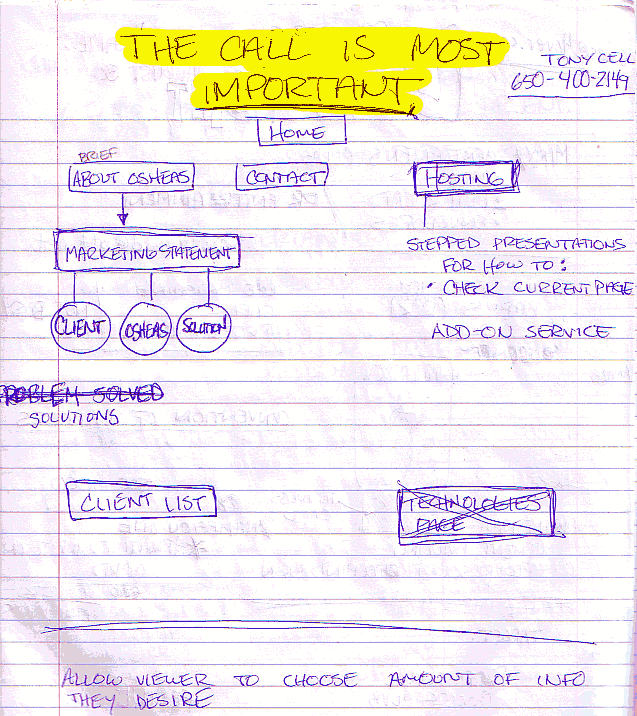 THE CALL IS MOST
IMPORTANT
TONY CELL
650-400-2149
HOME
BRIEF
ABOUT OSHEAS
CONTACT
HOSTING
MARKETING STATEMENT
STEPPED PRESENTATIONS
FOR HOW TO:
• CHECK CURRENT PAGE
CLIENT
OSHEAS
SOLUTION
ADD-ON SERVICE
PROBLEM SOLVED
SOLUTIONS
CLIENT LIST
TECHNOLOGIES
PAGE
ALLOW VIEWER TO CHOOSE AMOUNT OF INFO
THEY DESIRE